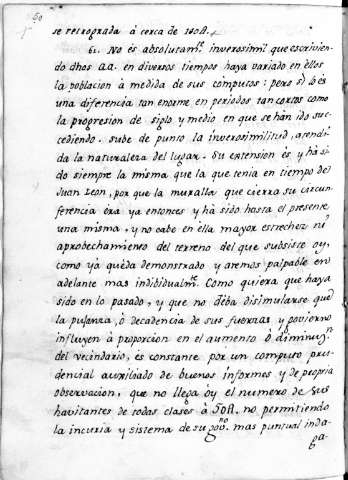 se retrograda à cerca de 140A.
61. No és absolutam.te inverosimil que escrivien-
do dhos AA. en diversos tiempos haya variado en éllos
la poblacion à medida de sus cómputos: pero sì lo és
una diferencia tan enorme en periodos tan cortos como
la progresion de siglo y medio en que se hán ido suc-
cediendo. sube de punto la inverosimilitud, atendi-
da la naturaleza del lugar. Su extension és y há si-
do siempre la misma que la que tenia en tiempo de
Juan Leon, por que la muralla que cierra su circun-
ferencia éra ya entonces y há sido hasta el presente
una misma, y no cabe en élla mayor estrechez ni
aprobechamiento del terreno del que subsiste oy,
como yá queda demonstrado y aremos palpable en
adelante mas individualm.te Como quiera que haya
sido en lo pasado, y que no déba disimularse que
la pujanza, ò decadencia de sus fuerzas y govierno
influyen à proporcion en el aumento ò diminuz.n
del vecindario, és constante por un computo pru-
dencial auxiliado de buenos informes y de propia
observacion, que no llega óy el numero de sus
havitantes de todas clases à 50A. no permitiendo
la incuria y sistema de su gov.no mas puntual inda-
ga-